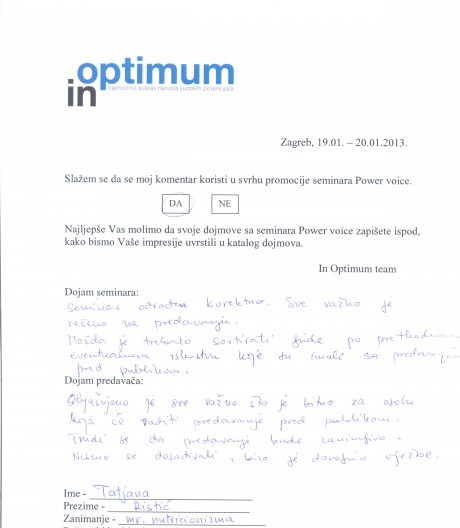 optimum
in
najmoćniji sustav razvoja ljudskih potencijala
Zagreb, 19.01. – 20.01.2013.
Slažem se da se moj komentar koristi u svrhu promocije seminara Power voice.
DA NE
Najljepše Vas molimo da svoje dojmove sa seminara Power voice zapišete ispod,
kako bismo Vaše impresije uvrstili u katalog dojmova.
In Optimum team
Dojam seminara:
Seminar odrađen korektno. Sve važno je
rečeno na predavanju.
Možda je trebalo sortirati ljude po prethodnom
eventualnom iskustvu koje su imali sa predavanjem
pred publikom.
Dojam predavača:
Objašnjeno je sve važno što je bitno za osobu
koja će raditi predavanje pred publikom.
Trudi se da predavanje bude zanimljivo.
Nismo se dosađivali, bilo je dovoljno vježbe.
Ime - Tatjana
Prezime - Ristić
Zanimanje - mr. nutricionizma